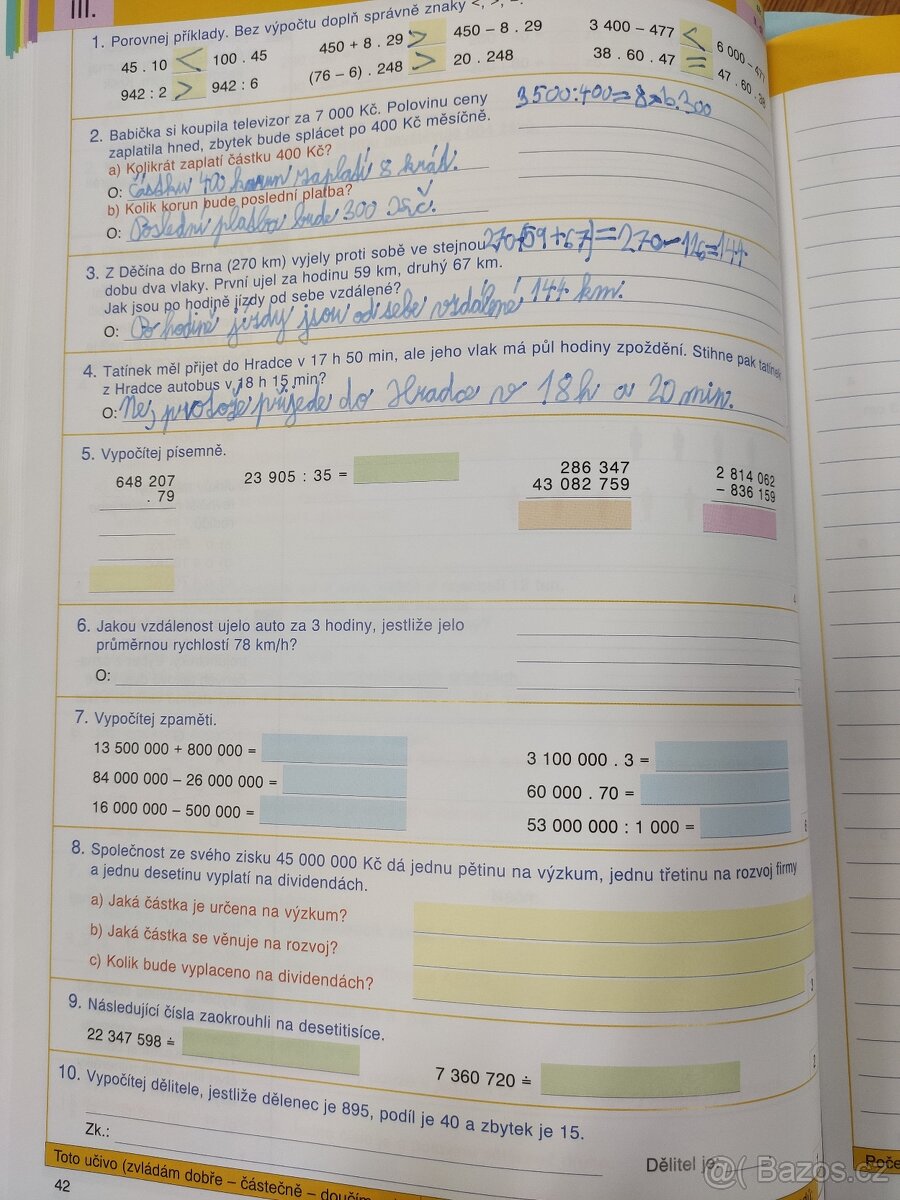 III.
1. Porovnej příklady. Bez výpočtu doplň správně znaky <, >, =.
45 . 10 < 100 . 45
450 + 8 . 29 > 450 – 8 . 29
3 400 – 477 < 6 000 – 477
942 : 2 > 942 : 6
(76 – 6) . 248 > 20 . 248
38 . 60 . 47 = 47 . 60 . 38
2. Babička si koupila televizor za 7 000 Kč. Polovinu ceny
zaplatila hned, zbytek bude splácet po 400 Kč měsíčně.
3500:400=8 zb.300
a) Kolikrát zaplatí částku 400 Kč?
O: částku 400 korun zaplatí 8 krát.
b) Kolik korun bude poslední platba?
O: Poslední platba bude 300 Kč.
3. Z Děčína do Brna (270 km) vyjely proti sobě ve stejnou
270-(59+67)=270-126=144
dobu dva vlaky. První ujel za hodinu 59 km, druhý 67 km.
Jak jsou po hodině jízdy od sebe vzdálené?
O: Po hodině jízdy jsou od sebe vzdálené 144 km.
4. Tatínek měl přijet do Hradce v 17 h 50 min, ale jeho vlak má půl hodiny zpoždění. Stihne pak tatínek
z Hradce autobus v 18 h 15 min?
O: Ne, protože přijede do Hradce v 18h a 20 min.
5. Vypočítej písemně.
648 207
. 79
23 905 : 35 =
286 347
43 082 759
2 814 062
– 836 159
6. Jakou vzdálenost ujelo auto za 3 hodiny, jestliže jelo
průměrnou rychlostí 78 km/h?
O:
7. Vypočítej zpaměti.
13 500 000 + 800 000 =
3 100 000 . 3 =
84 000 000 – 26 000 000 =
60 000 . 70 =
16 000 000 – 500 000 =
53 000 000 : 1 000 =
8. Společnost ze svého zisku 45 000 000 Kč dá jednu pětinu na výzkum, jednu třetinu na rozvoj firmy
a jednu desetinu vyplatí na dividendách.
a) Jaká částka je určena na výzkum?
b) Jaká částka se věnuje na rozvoj?
c) Kolik bude vyplaceno na dividendách?
3
9. Následující čísla zaokrouhli na desetitisíce.
22 347 598 ≐
7 360 720 ≐
2
10. Vypočítej dělitele, jestliže dělenec je 895, podíl je 40 a zbytek je 15.
Zk.:
Dělitel je
Toto učivo (zvládám dobře – částečně – doučím
42
Bazos.cz